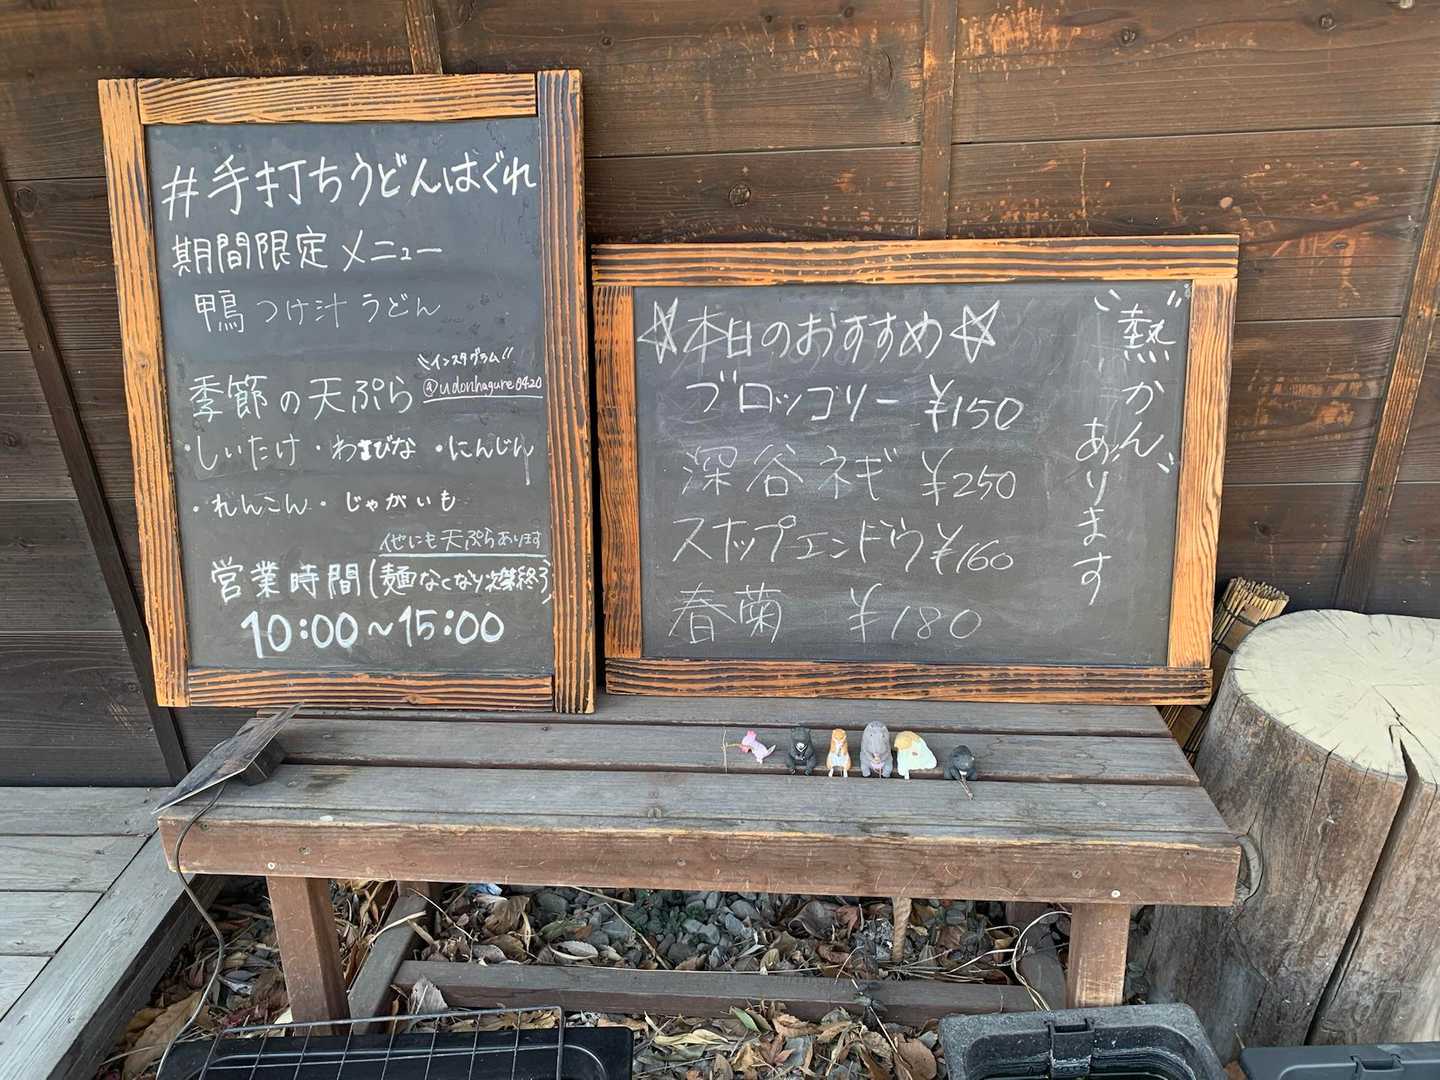 #手打ちうどんはぐれ
期間限定メニュー
鴨つけ汁うどん
インスタグラム
@udonhagure0420
季節の天ぷら
・しいたけ・わさびな・にんじん
・れんこん・じゃがいも
他にも天ぷらあります
営業時間(麺なくなり次第終了)
10:00〜15:00
☆本日のおすすめ☆
ブロッコリー ¥150
深谷ネギ ¥250
スナップエンドウ ¥160
春菊 ¥180
"熱かん"
あります